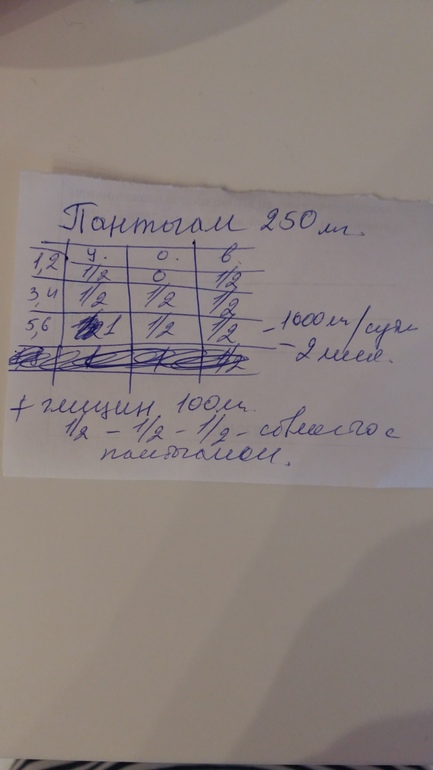 Пантогам 250 мг.
у. о. в.
1,2 1/2 0 1/2
3,4 1/2 1/2 1/2
5,6 1 1/2 1/2 - 1000 мг/сутки
- 2 мес.
+ глицин 100 мг.
1/2 - 1/2 - 1/2 - совместно с
пантогамом.